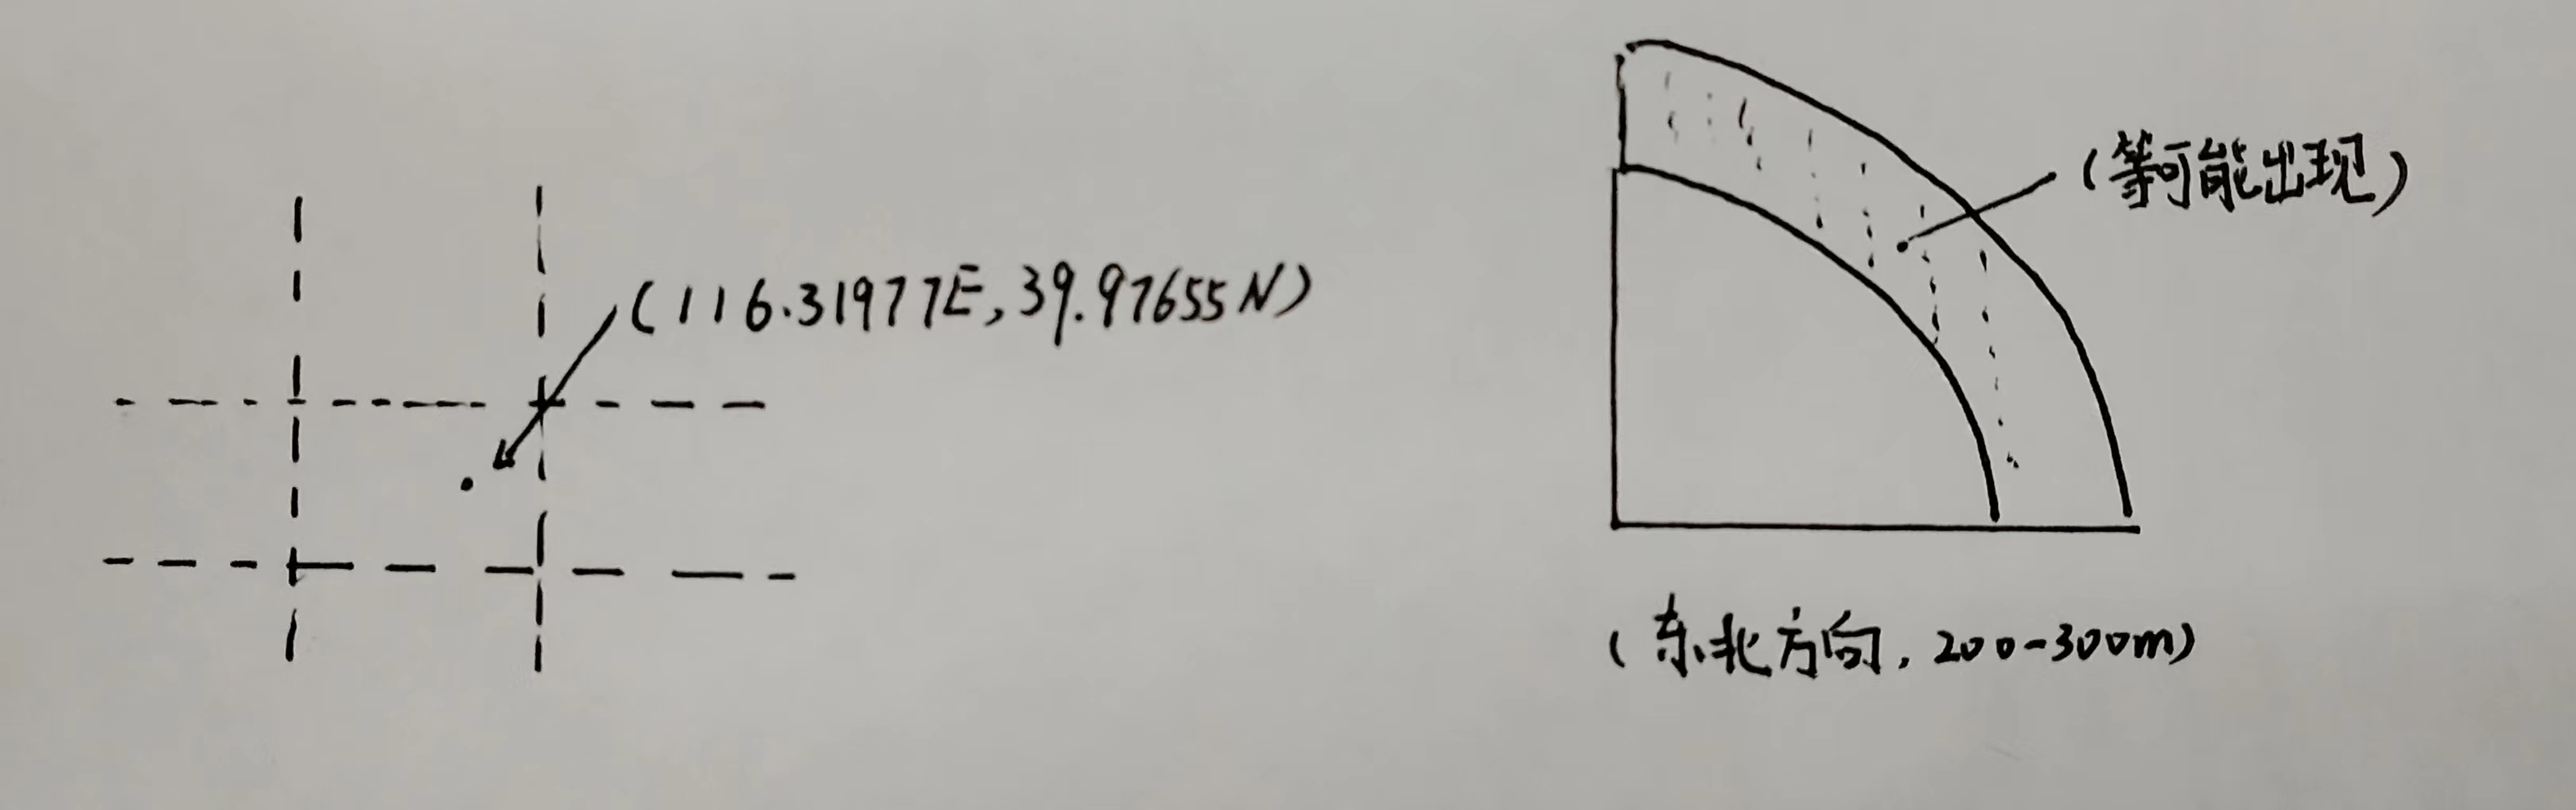 (116.31977E, 39.97655N)
(等可能出现)
(东北方向, 200-300m)